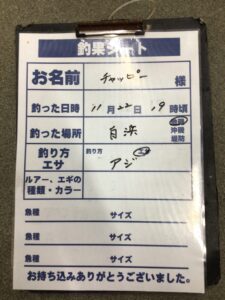 釣果シート
お名前 チャッピー 様
釣った日時 11月22日19時頃
釣った場所 自楽 沖磯 堤防
釣り方 エサ 釣り方 アジ
ルアー、エギの種類・カラー
魚種 サイズ
魚種 サイズ
魚種 サイズ
お持ち込みありがとうございました。